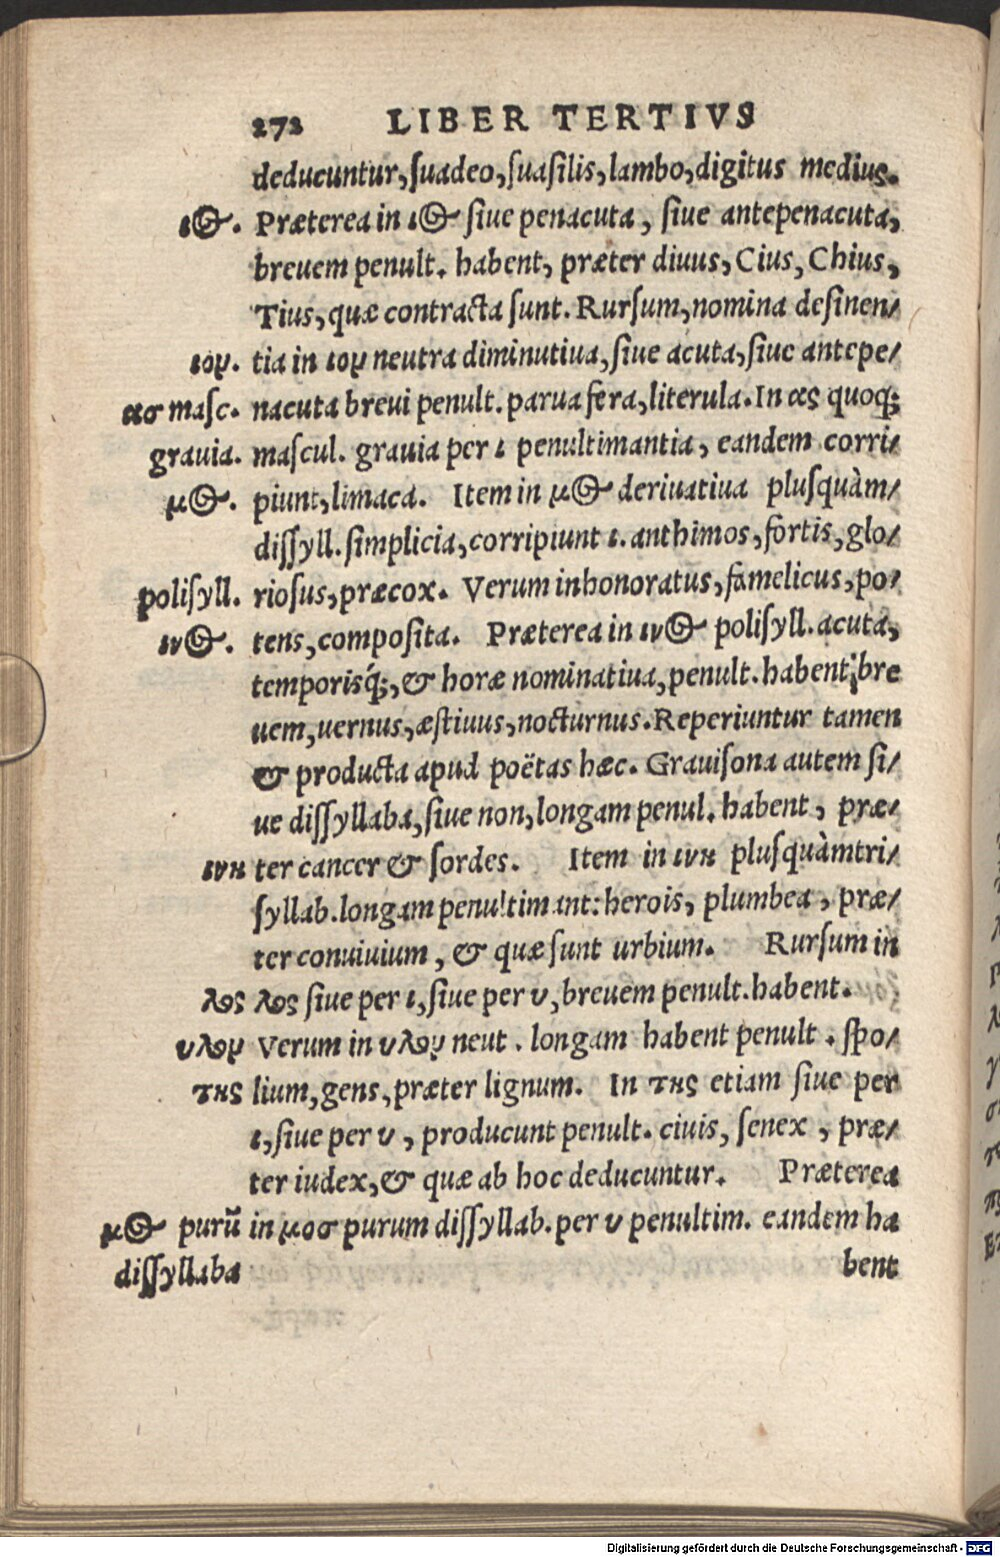 272 LIBER TERTIVS
deducuntur, ſuadeo, ſuaſilis, lambo, digitus medius.
ιος. Præterea in ιος ſiue penacuta, ſiue antepenacuta,
breuem penult. habent, præter diuus, Cius, Chius,
Tius, quæ contracta ſunt. Rurſum, nomina deſinen/
ιομ. tia in ιομ neutra diminutiua, ſiue acuta, ſiue antepe/
ασ maſc. nacuta breui penult. parua fera, literula. In ας quoq;
grauia. maſcul. grauia per ι penultimantia, eandem corri/
μος. piunt, limaca. Item in μος deriuatiua plusquàm/
diſſyll. ſimplicia, corripiunt ι. anthimos, fortis, glo/
polisyll. rioſus, præcox. Verum inhonoratus, famelicus, po/
ινος. tens, compoſita. Præterea in ινος poliſyll. acuta,
temporisq́;, & horæ nominatiua, penult. habent bre
uem, uernus, æſtiuus, nocturnus. Reperiuntur tamen
& producta apud poëtas hæc. Grauiſona autem ſi/
ue diſſyllaba, ſiue non, longam penul. habent, præ/
ινη ter cancer & ſordes. Item in ινη plusquàmtri/
ſyllab. longam penultimant: herois, plumbea, præ/
ter conuiuium, & quæ ſunt urbium. Rurſum in
λος λος ſiue per ι, ſiue per υ, breuem penult. habent.
υλομ Verum in υλομ neut. longam habent penult. ſpo/
της lium, gens, præter lignum. In της etiam ſiue per
ι, ſiue per υ, producunt penult. ciuis, ſenex, præ/
ter iudex, & quæ ab hoc deducuntur. Præterea
μος purũ in μοσ purum diſſyllab. per υ penultim. eandem ha
diſſyllaba bent
Digitalisierung gefördert durch die Deutsche Forschungsgemeinschaft - DFG